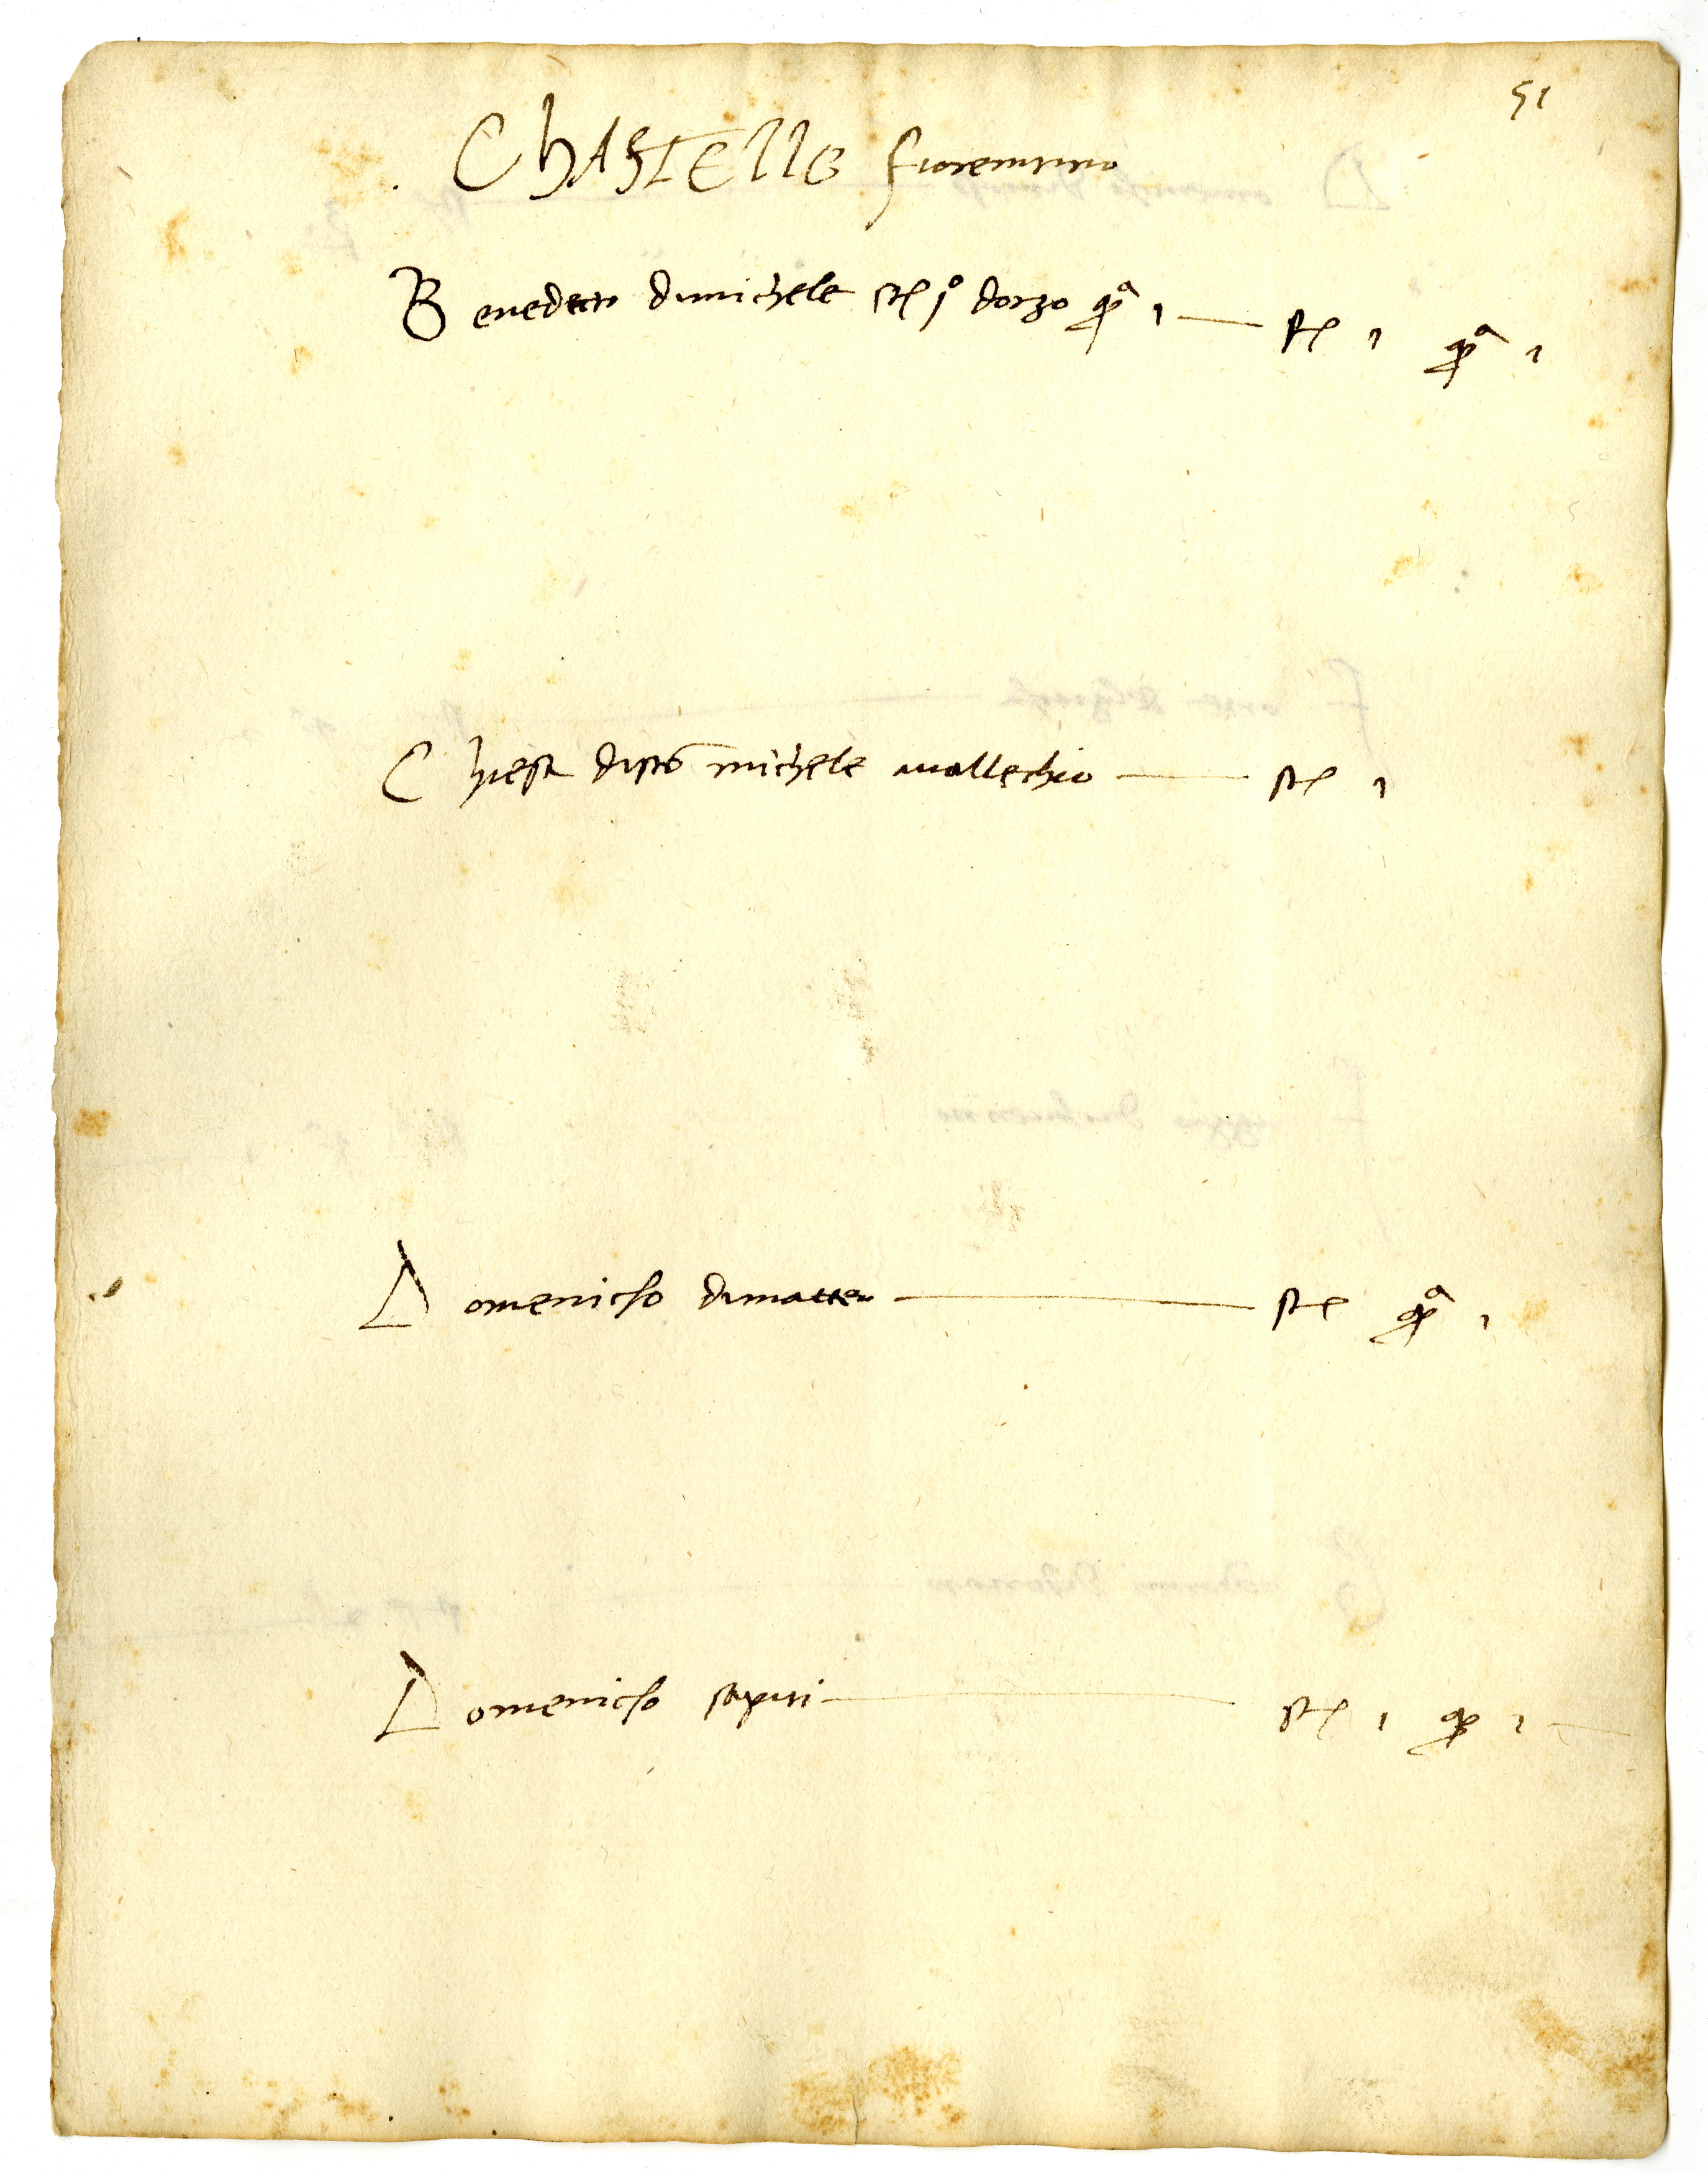 51
Chastello fiorentino
Benedetto dimichele st 1º dorzo qª 1 — st 1 qª 1
Chiesa disto michele avallechio — st 1
Domenicho dimatteo — st qª 1
Domenicho saputi — st 1 q 2 —